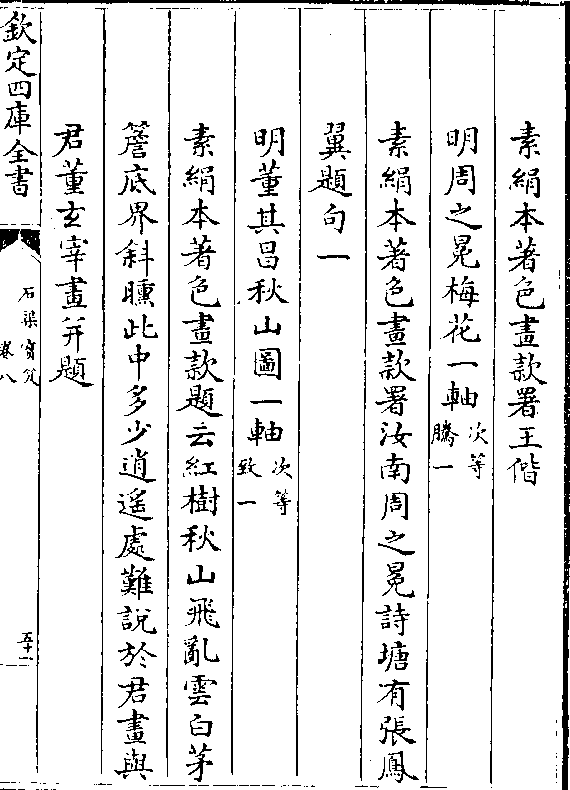 素絹本著色畫款署王偕
明周之冕梅花一軸次等
騰一
素絹本著色畫款署汝南周之冕詩塘有張鳳
翼題句一
明董其昌秋山圖一軸次等
致一
素絹本著色畫款題云紅樹秋山飛亂雲白茅
簷底界斜曛此中多少逍遥處難説於君畫與
君董玄宰畫并題
欽定四庫全書
石渠寳笈
卷八
五十一